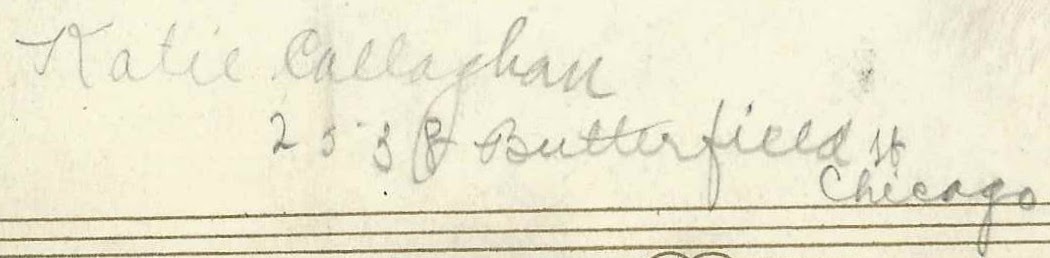 Katie Callaghan
2538 Butterfield St
Chicago